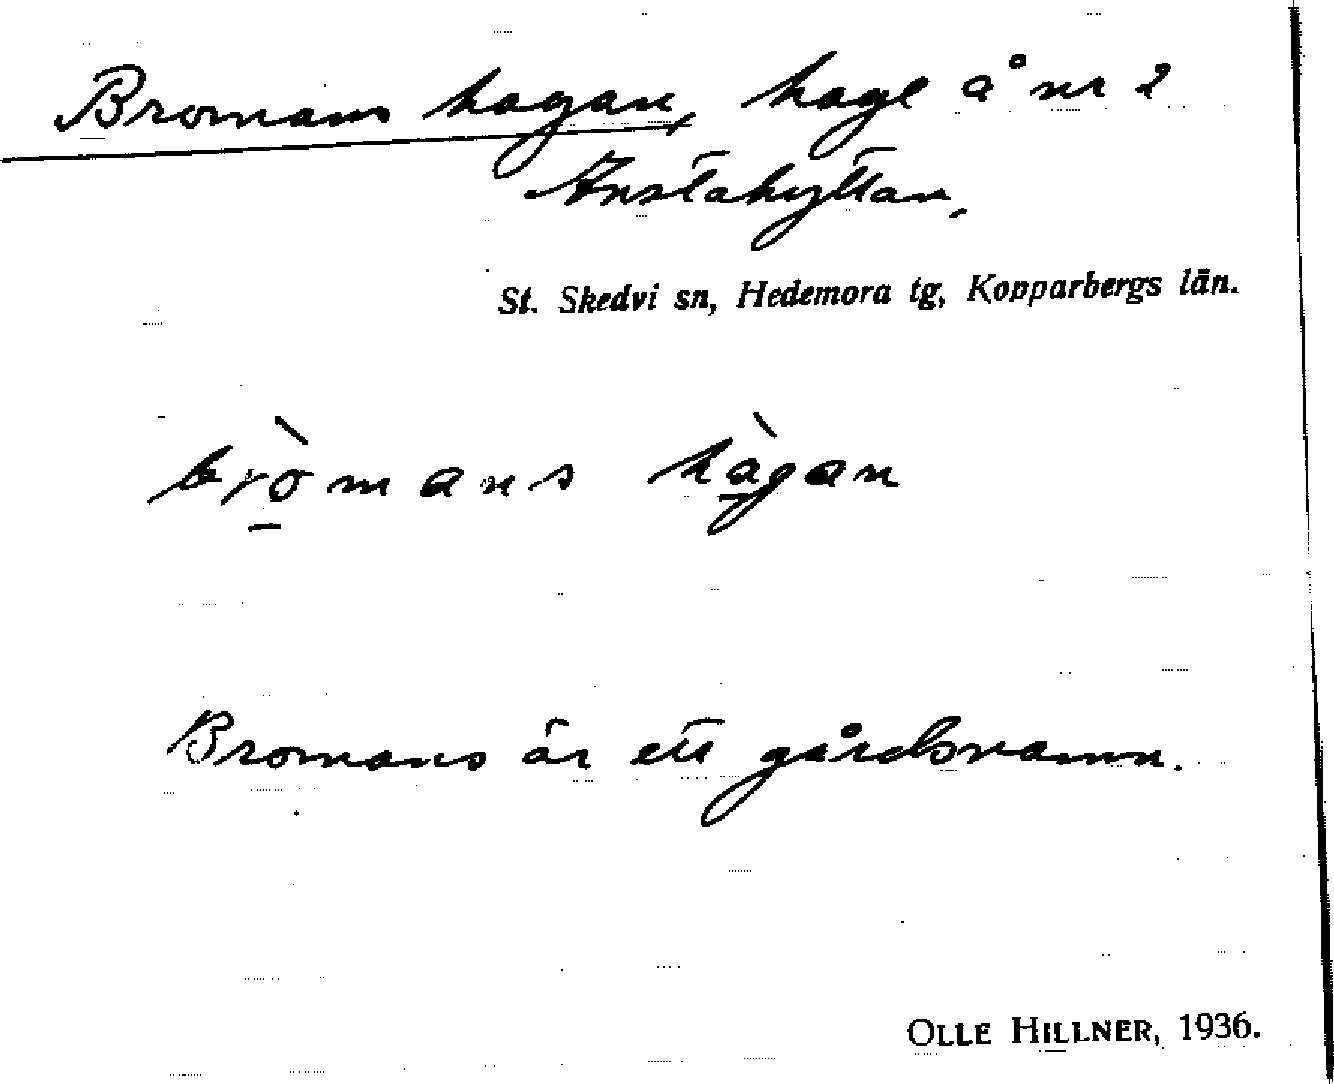 Bromans hagan, hage å nr 2
Anstahyttan,
St. Skedvi sn, Hedemora tg, Kopparbergs län.
brò̱mans hà̱gan
Bromans är ett gårdsnamn.
OLLE HILLNER, 1936.